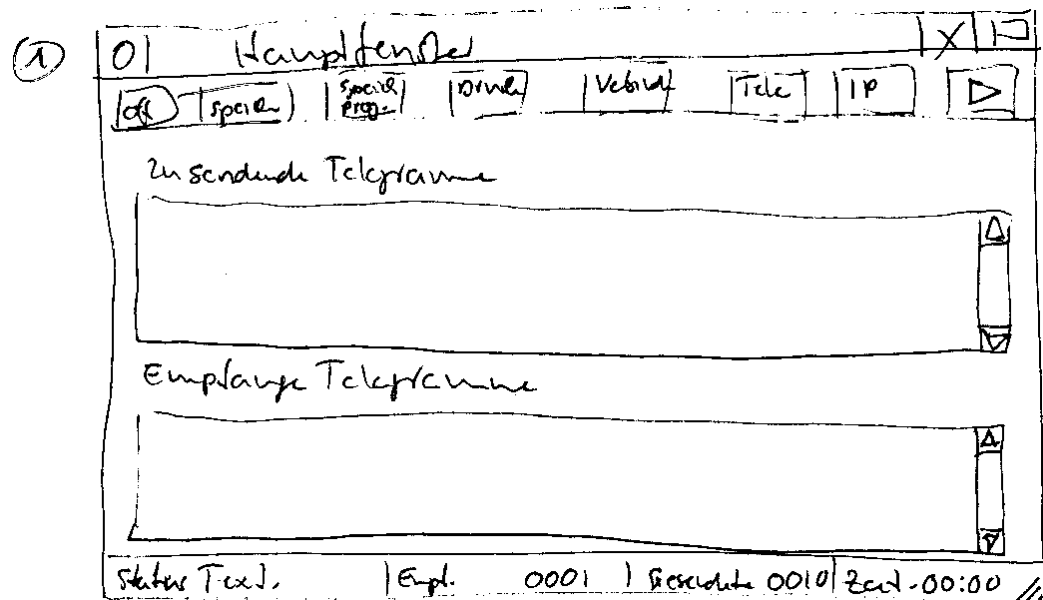 1
01 Hauptfenster
Speich Speich Druck Tele IP
Zu sendende Telegramme
Empfange Telegramme
Status Text. Empf. 0001 Gesendete 0010 Zeit. 00:00